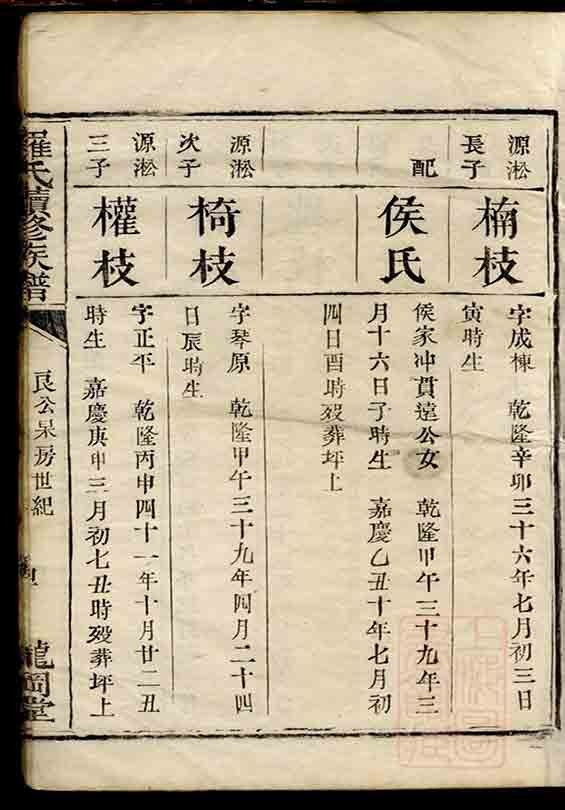 源淞
長子
楠枝
字成棟 乾隆辛卯三十六年七月初三日
寅時生
配
侯氏
侯家冲貫遠公女 乾隆甲午三十九年三
月十六日子時生 嘉慶乙丑十年七月初
四日酉時殁葬坪上
源淞
次子
椅枝
字琴原 乾隆甲午三十九年四月二十四
日辰時生
源淞
三子
權枝
字正平 乾隆丙申四十一年十月廿二丑
時生 嘉慶庚申三月初七丑時殁葬坪上
羅氏續修族譜
良公杲房世紀
龍岡堂